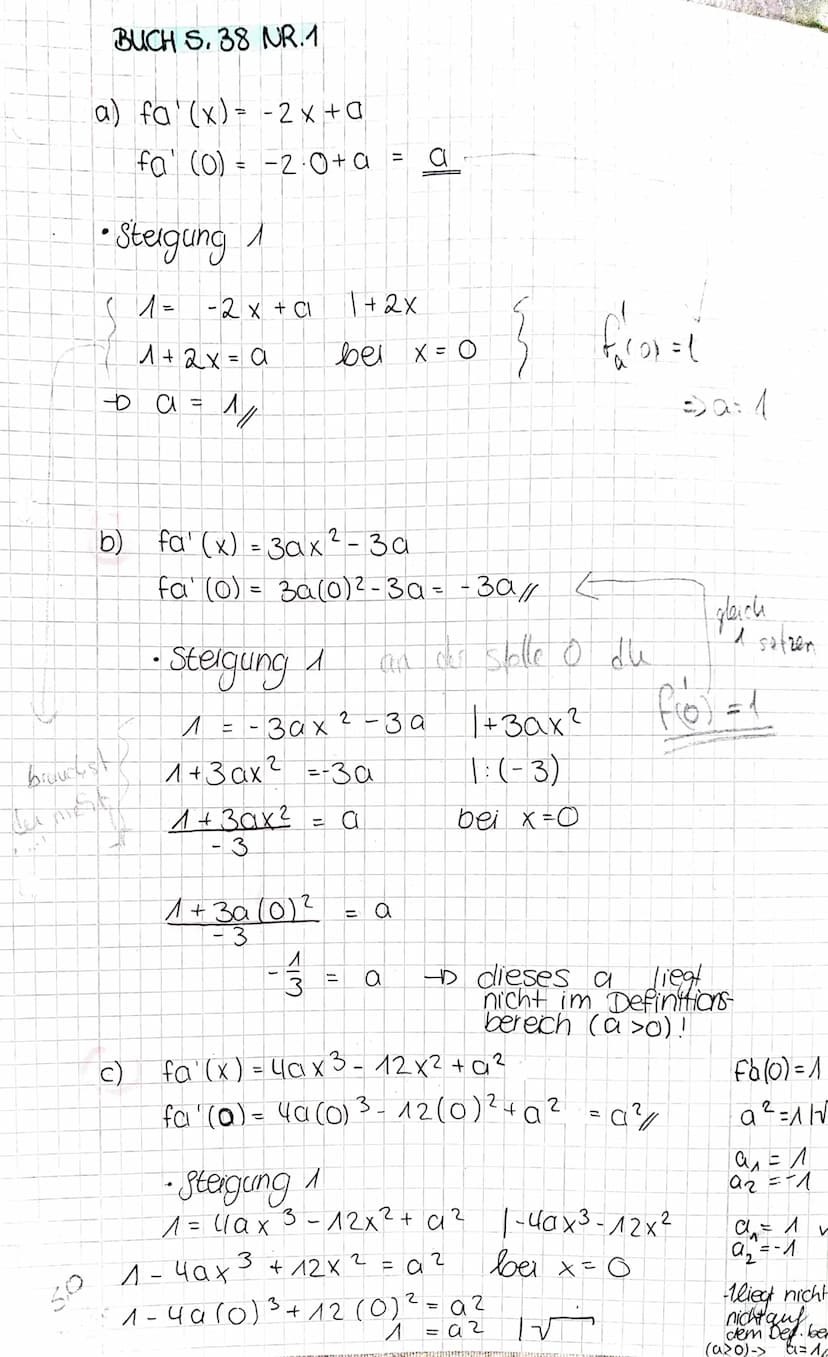 BUCH S. 38 NR. 1
a) fa'(x) = -2x + a
fa'(0) = -2·0 + a = a
• Steigung 1
1 = -2x + a |+2x
1 + 2x = a bei x = 0
fa'(0) = 1
→ a = 1
=> a = 1
b) fa'(x) = 3ax² - 3a
fa'(0) = 3a(0)² - 3a = -3a
gleich
1 setzen
• Steigung 1 an der Stelle 0
f'(0) = 1
1 = -3ax² - 3a |+3ax²
1 + 3ax² = -3a |:(-3)
brauchst
1 + 3ax² / -3 = a bei x = 0
1 + 3a(0)² / -3 = a
-1/3 = a → dieses a liegt
nicht im Definitions-
bereich (a > 0)!
c) fa'(x) = 4ax³ - 12x² + a²
fa'(0) = 4a(0)³ - 12(0)² + a² = a²
• Steigung 1
1 = 4ax³ - 12x² + a² |-4ax³ - 12x²
1 - 4ax³ + 12x² = a² bei x = 0
1 - 4a(0)³ + 12(0)² = a²
1 = a² |√
(0) = 1
a² = 1 |√
a₁ = 1
a₂ = -1
a₁ = 1
a₂ = -1
-1 liegt nicht
nicht auf
dem Def.
(a>0) -> a = 1